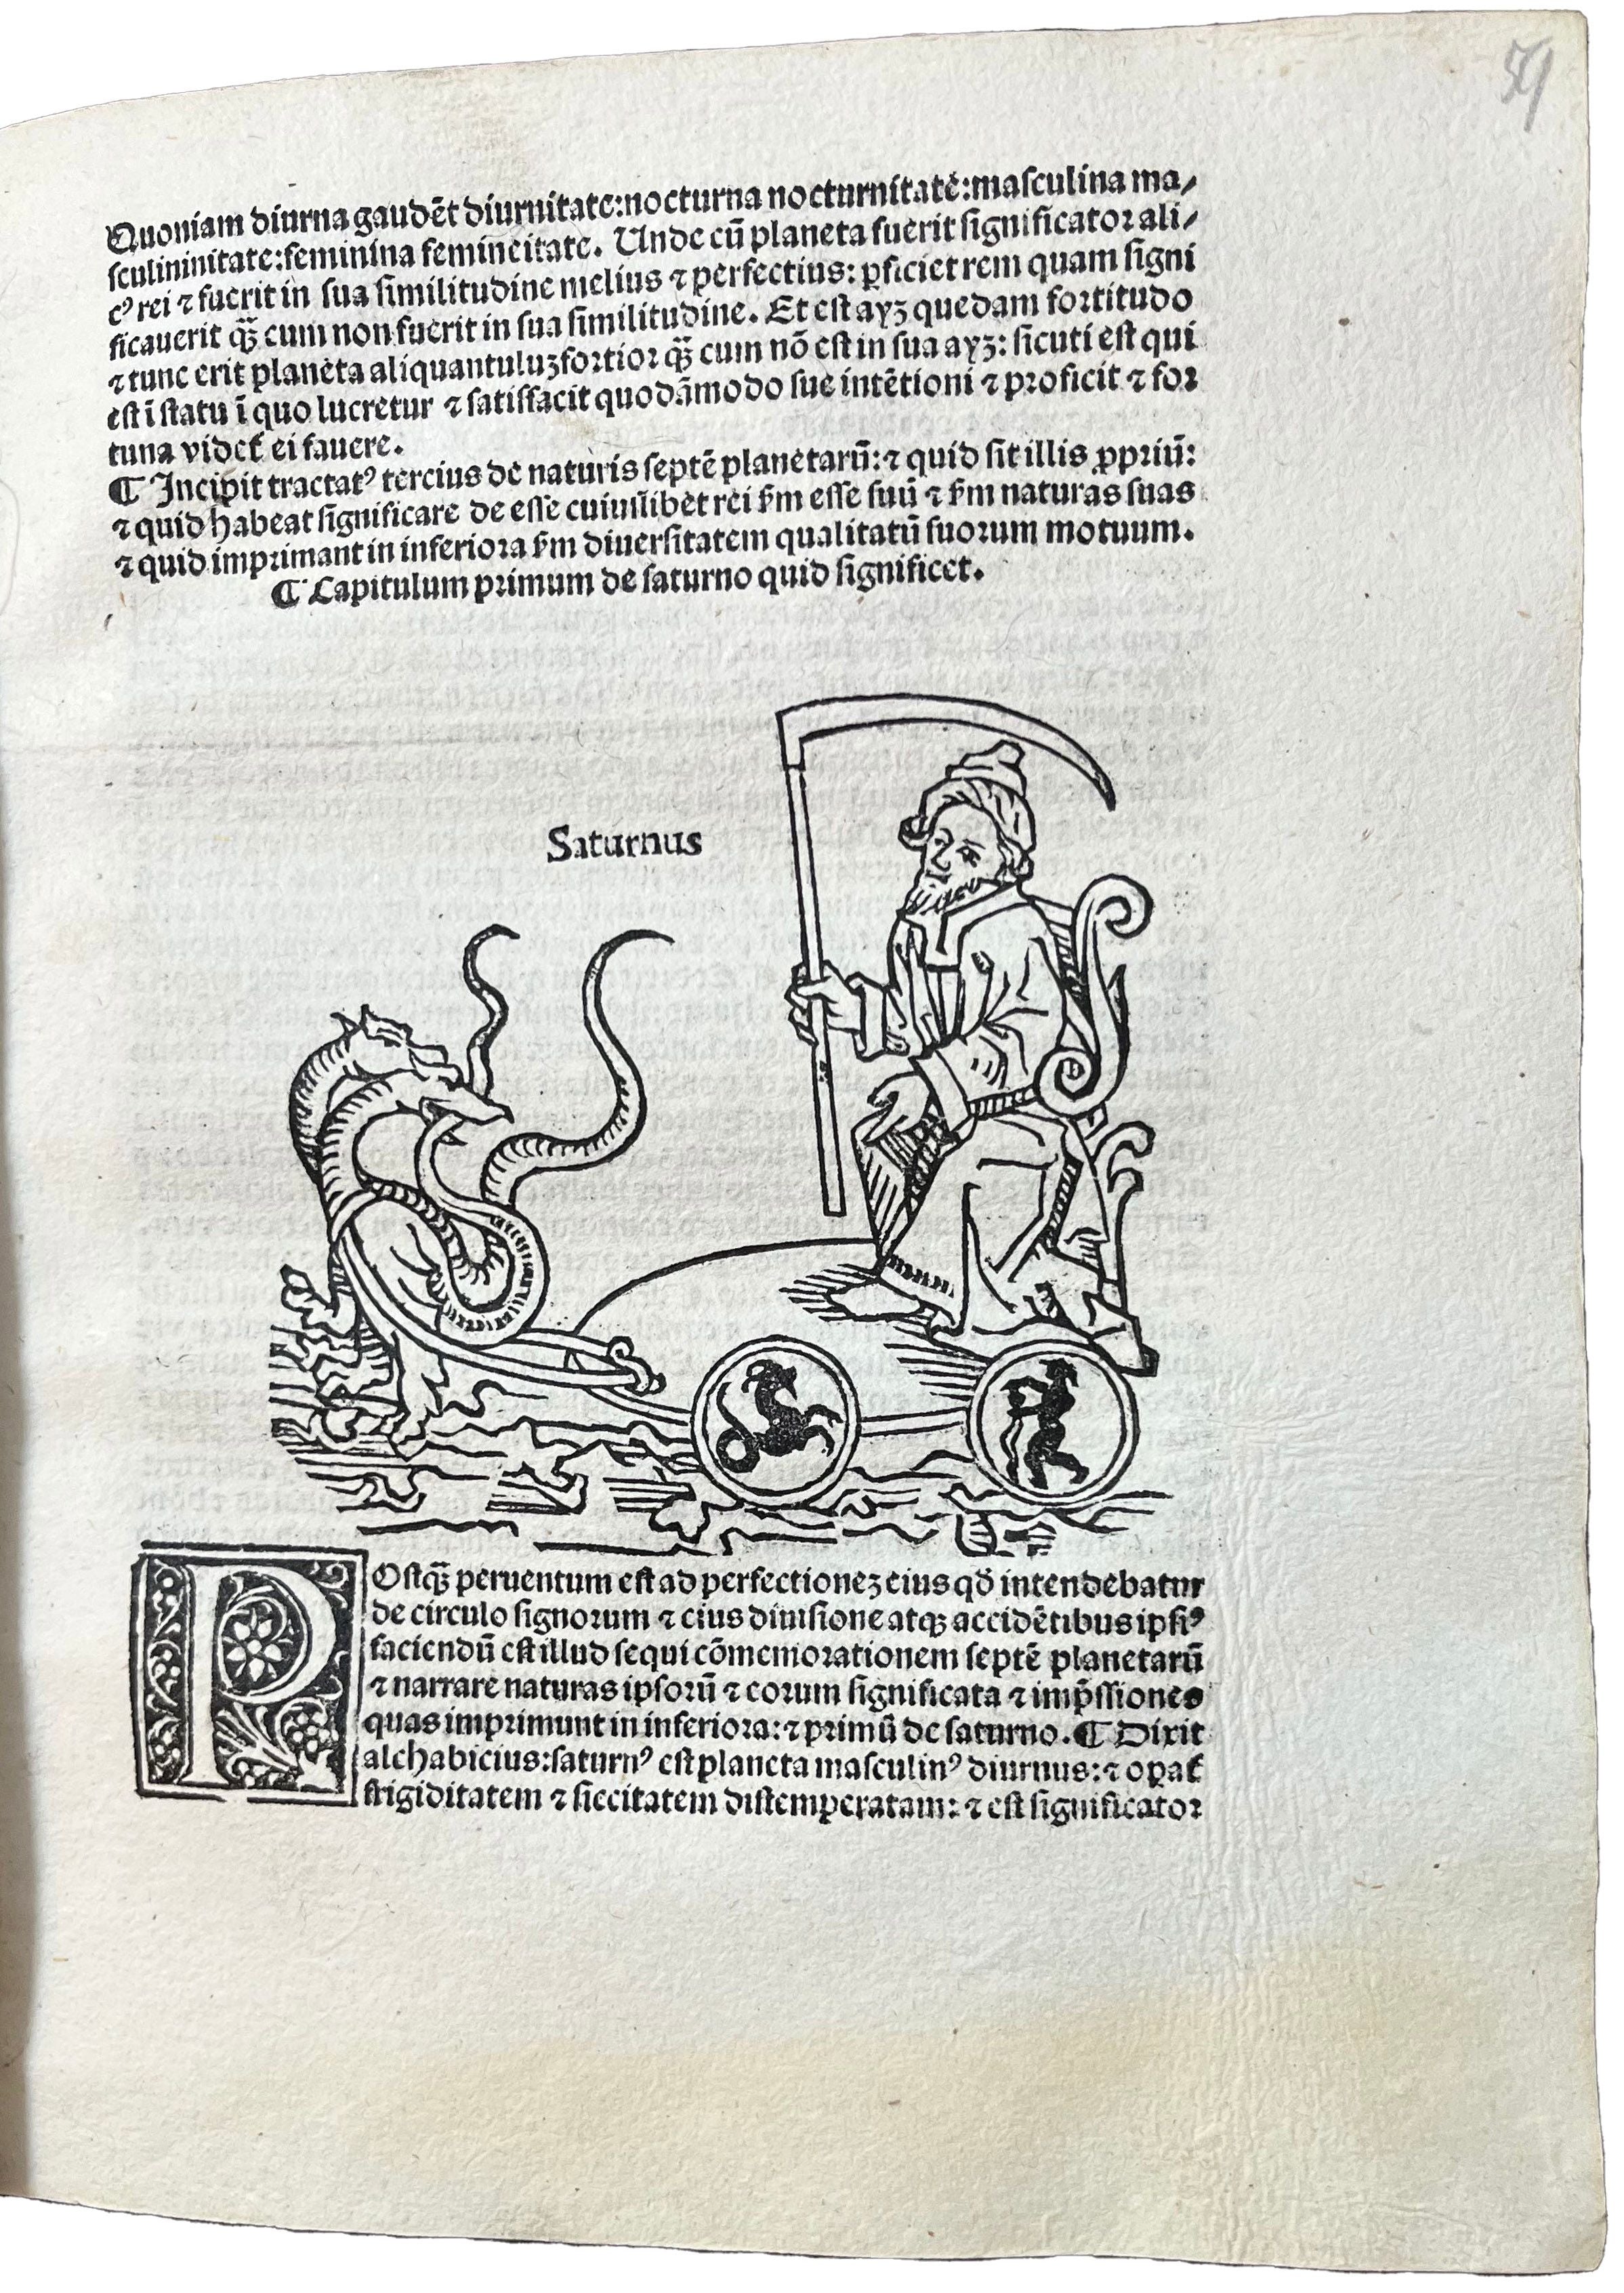 59
Quoniam diurna gaudēt diurnitate:nocturna nocturnitate:masculina ma/
sculininitate:feminina femineitate. Unde cū planeta fuerit significator ali/
cꝰ rei ⁊ fuerit in sua similitudine melius ⁊ perfectius: ꝑficiet rem quam signi
ficauerit qꝫ̄ cum non fuerit in sua similitudine. Et est ayꝫ quedam fortitudo
⁊ tunc erit planeta aliquantuluꝫ fortior qꝫ̄ cum nō est in sua ayꝫ: sicuti est qui
est ī statu ī quo lucretur ⁊ satisfacit quodāmodo sue intētioni ⁊ proficit ⁊ for
tuna videt᷑ ei fauere.
¶ Incipit tractatꝰ tercius de naturis septē planetarū: ⁊ quid sit illis ꝓpriū:
⁊ quid habeat significare de esse cuiuslibet rei ẜm esse suū ⁊ ẜm naturas suas
⁊ quid imprimant in inferiora ẜm diuersitatem qualitatū suorum motuum.
¶ Capitulum primum de saturno quid significet.
Saturnus
POstqꝫ̄ peruentum est ad perfectioneꝫ eius qd̄ intendebatur
de circulo signorum ⁊ eius diuisione atqꝫ accidētibus ipsiꝰ
faciendū est illud sequi cōmemorationem septē planetarū
⁊ narrare naturas ipsorū ⁊ eorum significata ⁊ imp̄ssiones
quas imprimunt in inferiora: ⁊ primū de saturno. ¶ Dixit
alchabicius: saturnꝰ est planeta masculinꝰ diurnus: ⁊ oꝑat᷑
frigiditatem ⁊ siccitatem distemperatam: ⁊ est significator